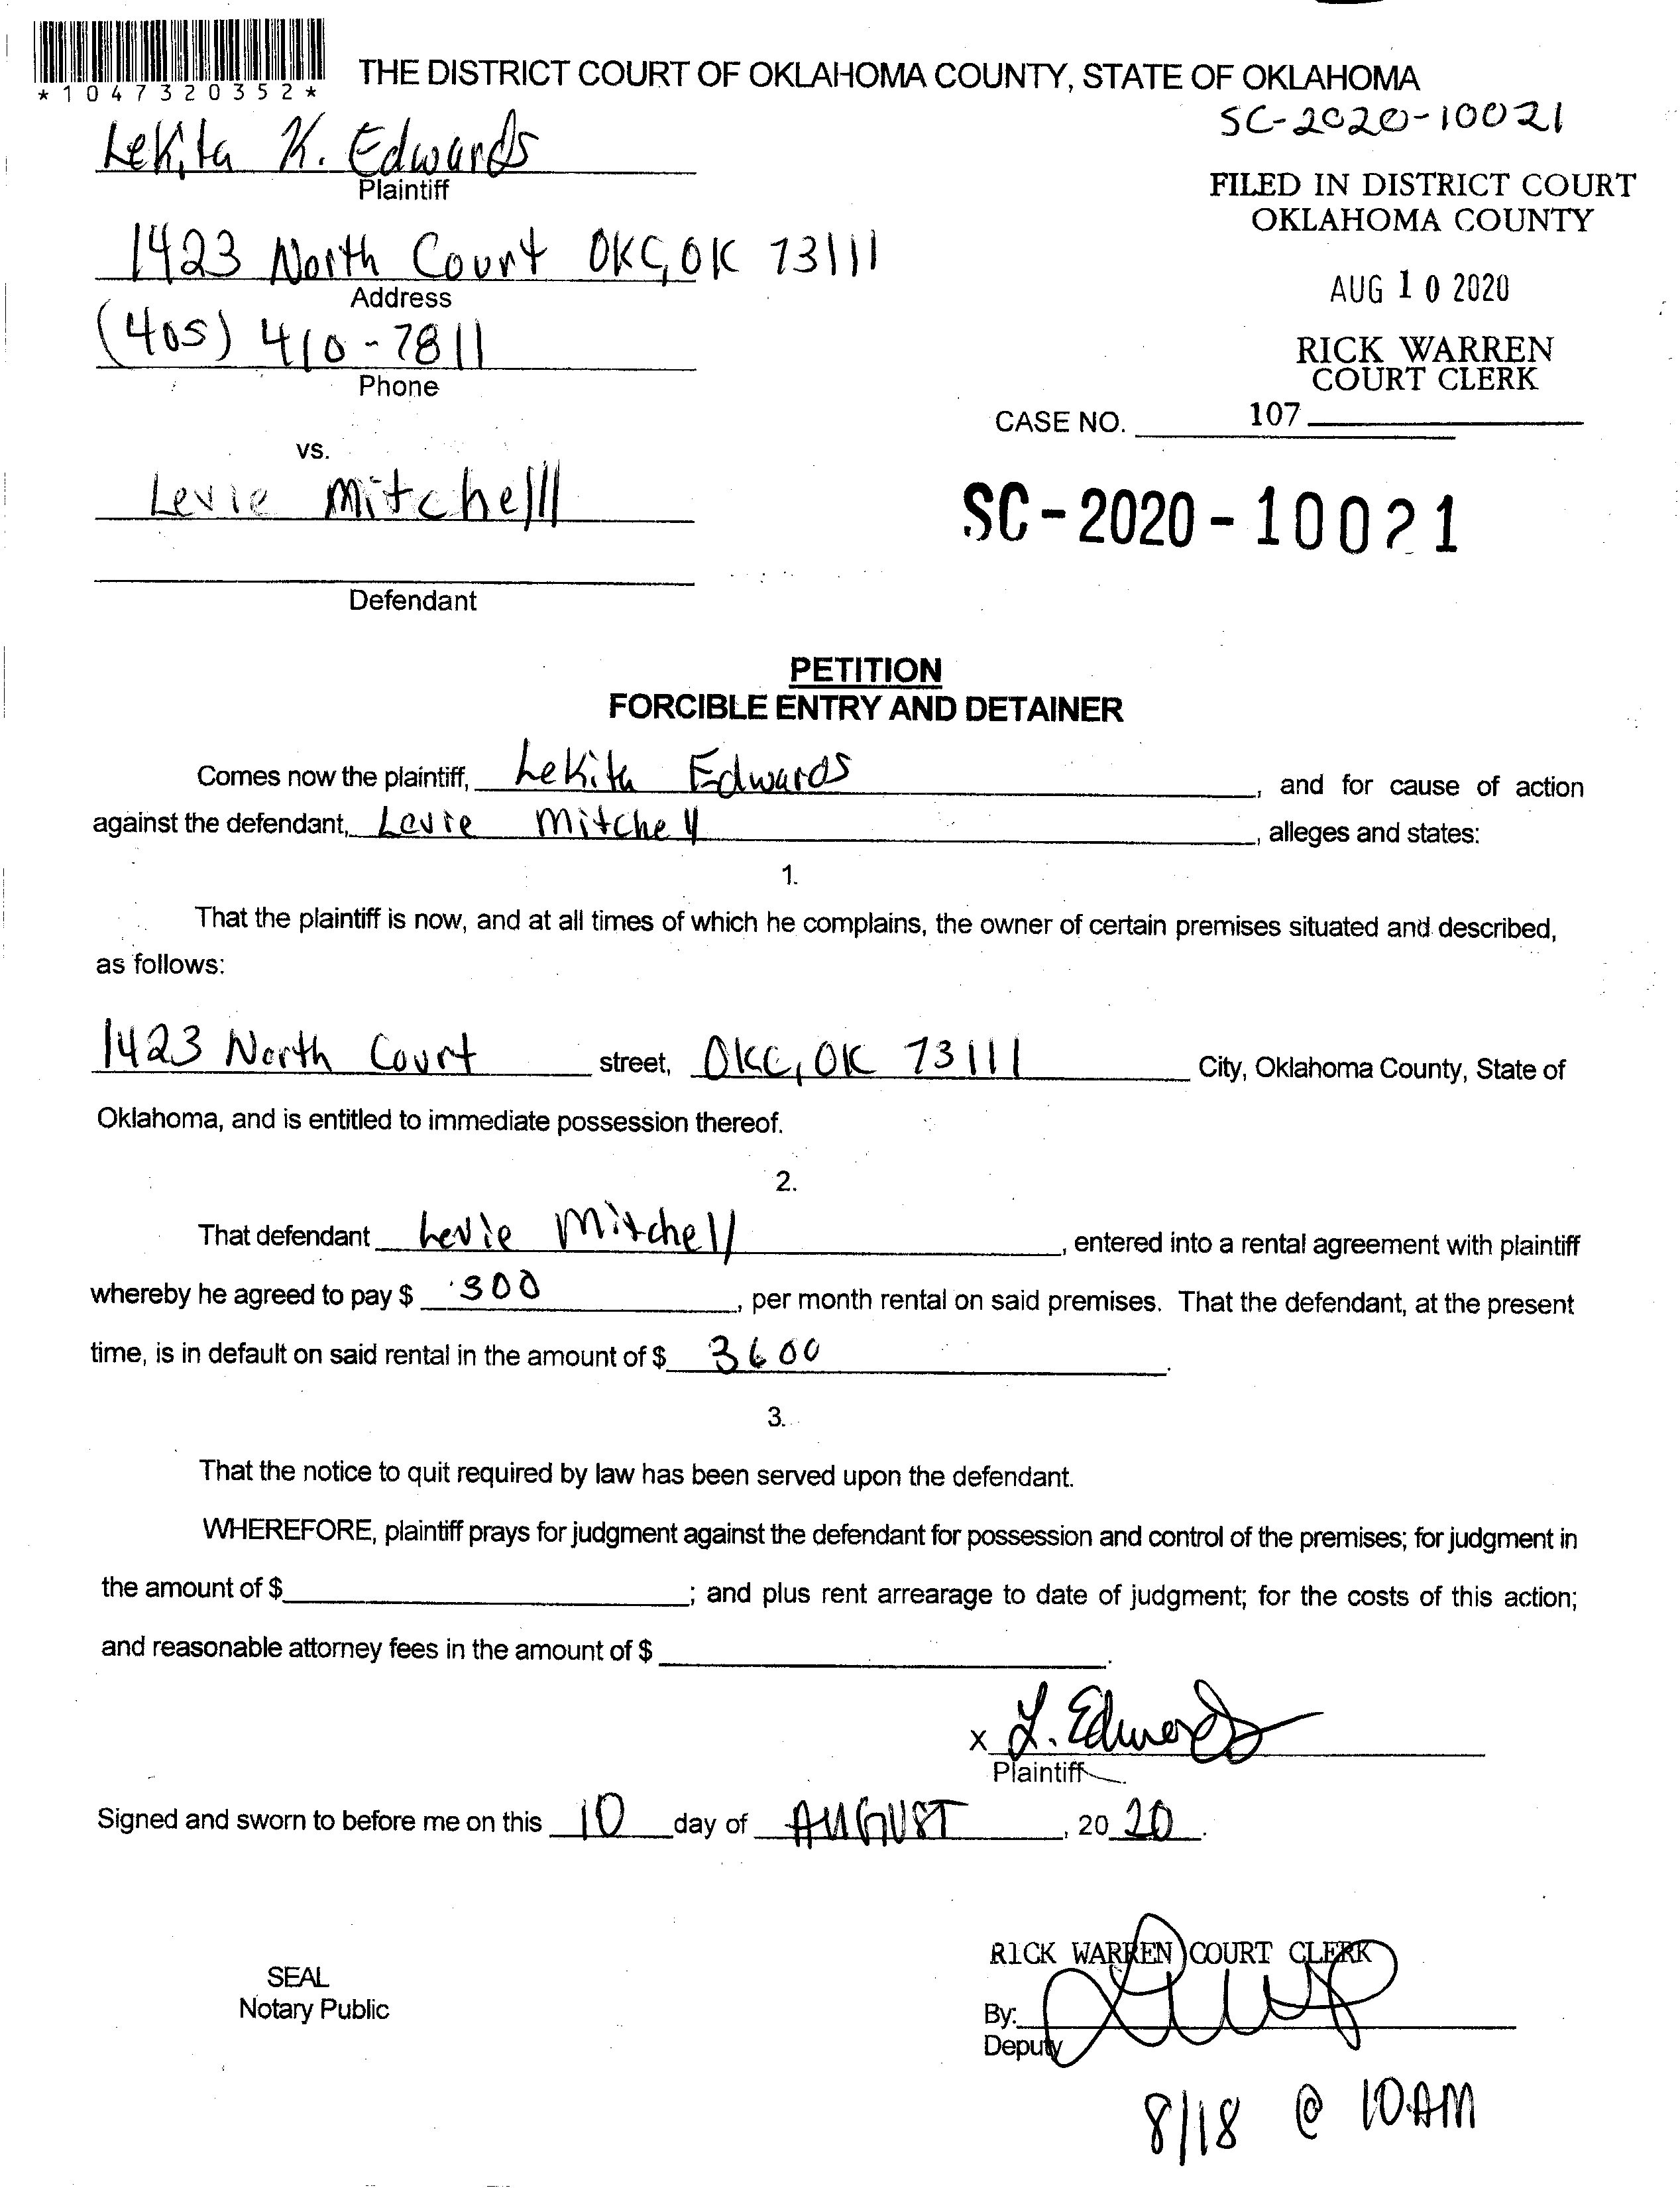 *1047320352*
THE DISTRICT COURT OF OKLAHOMA COUNTY, STATE OF OKLAHOMA
SC-2020-10021
LeKita K. Edwards
Plaintiff
FILED IN DISTRICT COURT
OKLAHOMA COUNTY
1423 North Court OKC, OK 73111
Address
AUG 10 2020
(405) 410-7811
Phone
RICK WARREN
COURT CLERK
CASE NO. 107
vs.
Levie Mitchell
SC-2020-10021
Defendant
PETITION
FORCIBLE ENTRY AND DETAINER
Comes now the plaintiff, LeKita Edwards, and for cause of action
against the defendant, Levie Mitchell, alleges and states:
1.
That the plaintiff is now, and at all times of which he complains, the owner of certain premises situated and described,
as follows:
1423 North Court street, OKC, OK 73111 City, Oklahoma County, State of
Oklahoma, and is entitled to immediate possession thereof.
2.
That defendant Levie Mitchell, entered into a rental agreement with plaintiff
whereby he agreed to pay $ 300, per month rental on said premises. That the defendant, at the present
time, is in default on said rental in the amount of $ 3600.
3.
That the notice to quit required by law has been served upon the defendant.
WHEREFORE, plaintiff prays for judgment against the defendant for possession and control of the premises; for judgment in
the amount of $ ; and plus rent arrearage to date of judgment; for the costs of this action;
and reasonable attorney fees in the amount of $ .
x L. Edwards
Plaintiff
Signed and sworn to before me on this 10 day of AUGUST, 2020.
SEAL
Notary Public
RICK WARREN COURT CLERK
By:
Deputy
8/18 @ 10AM